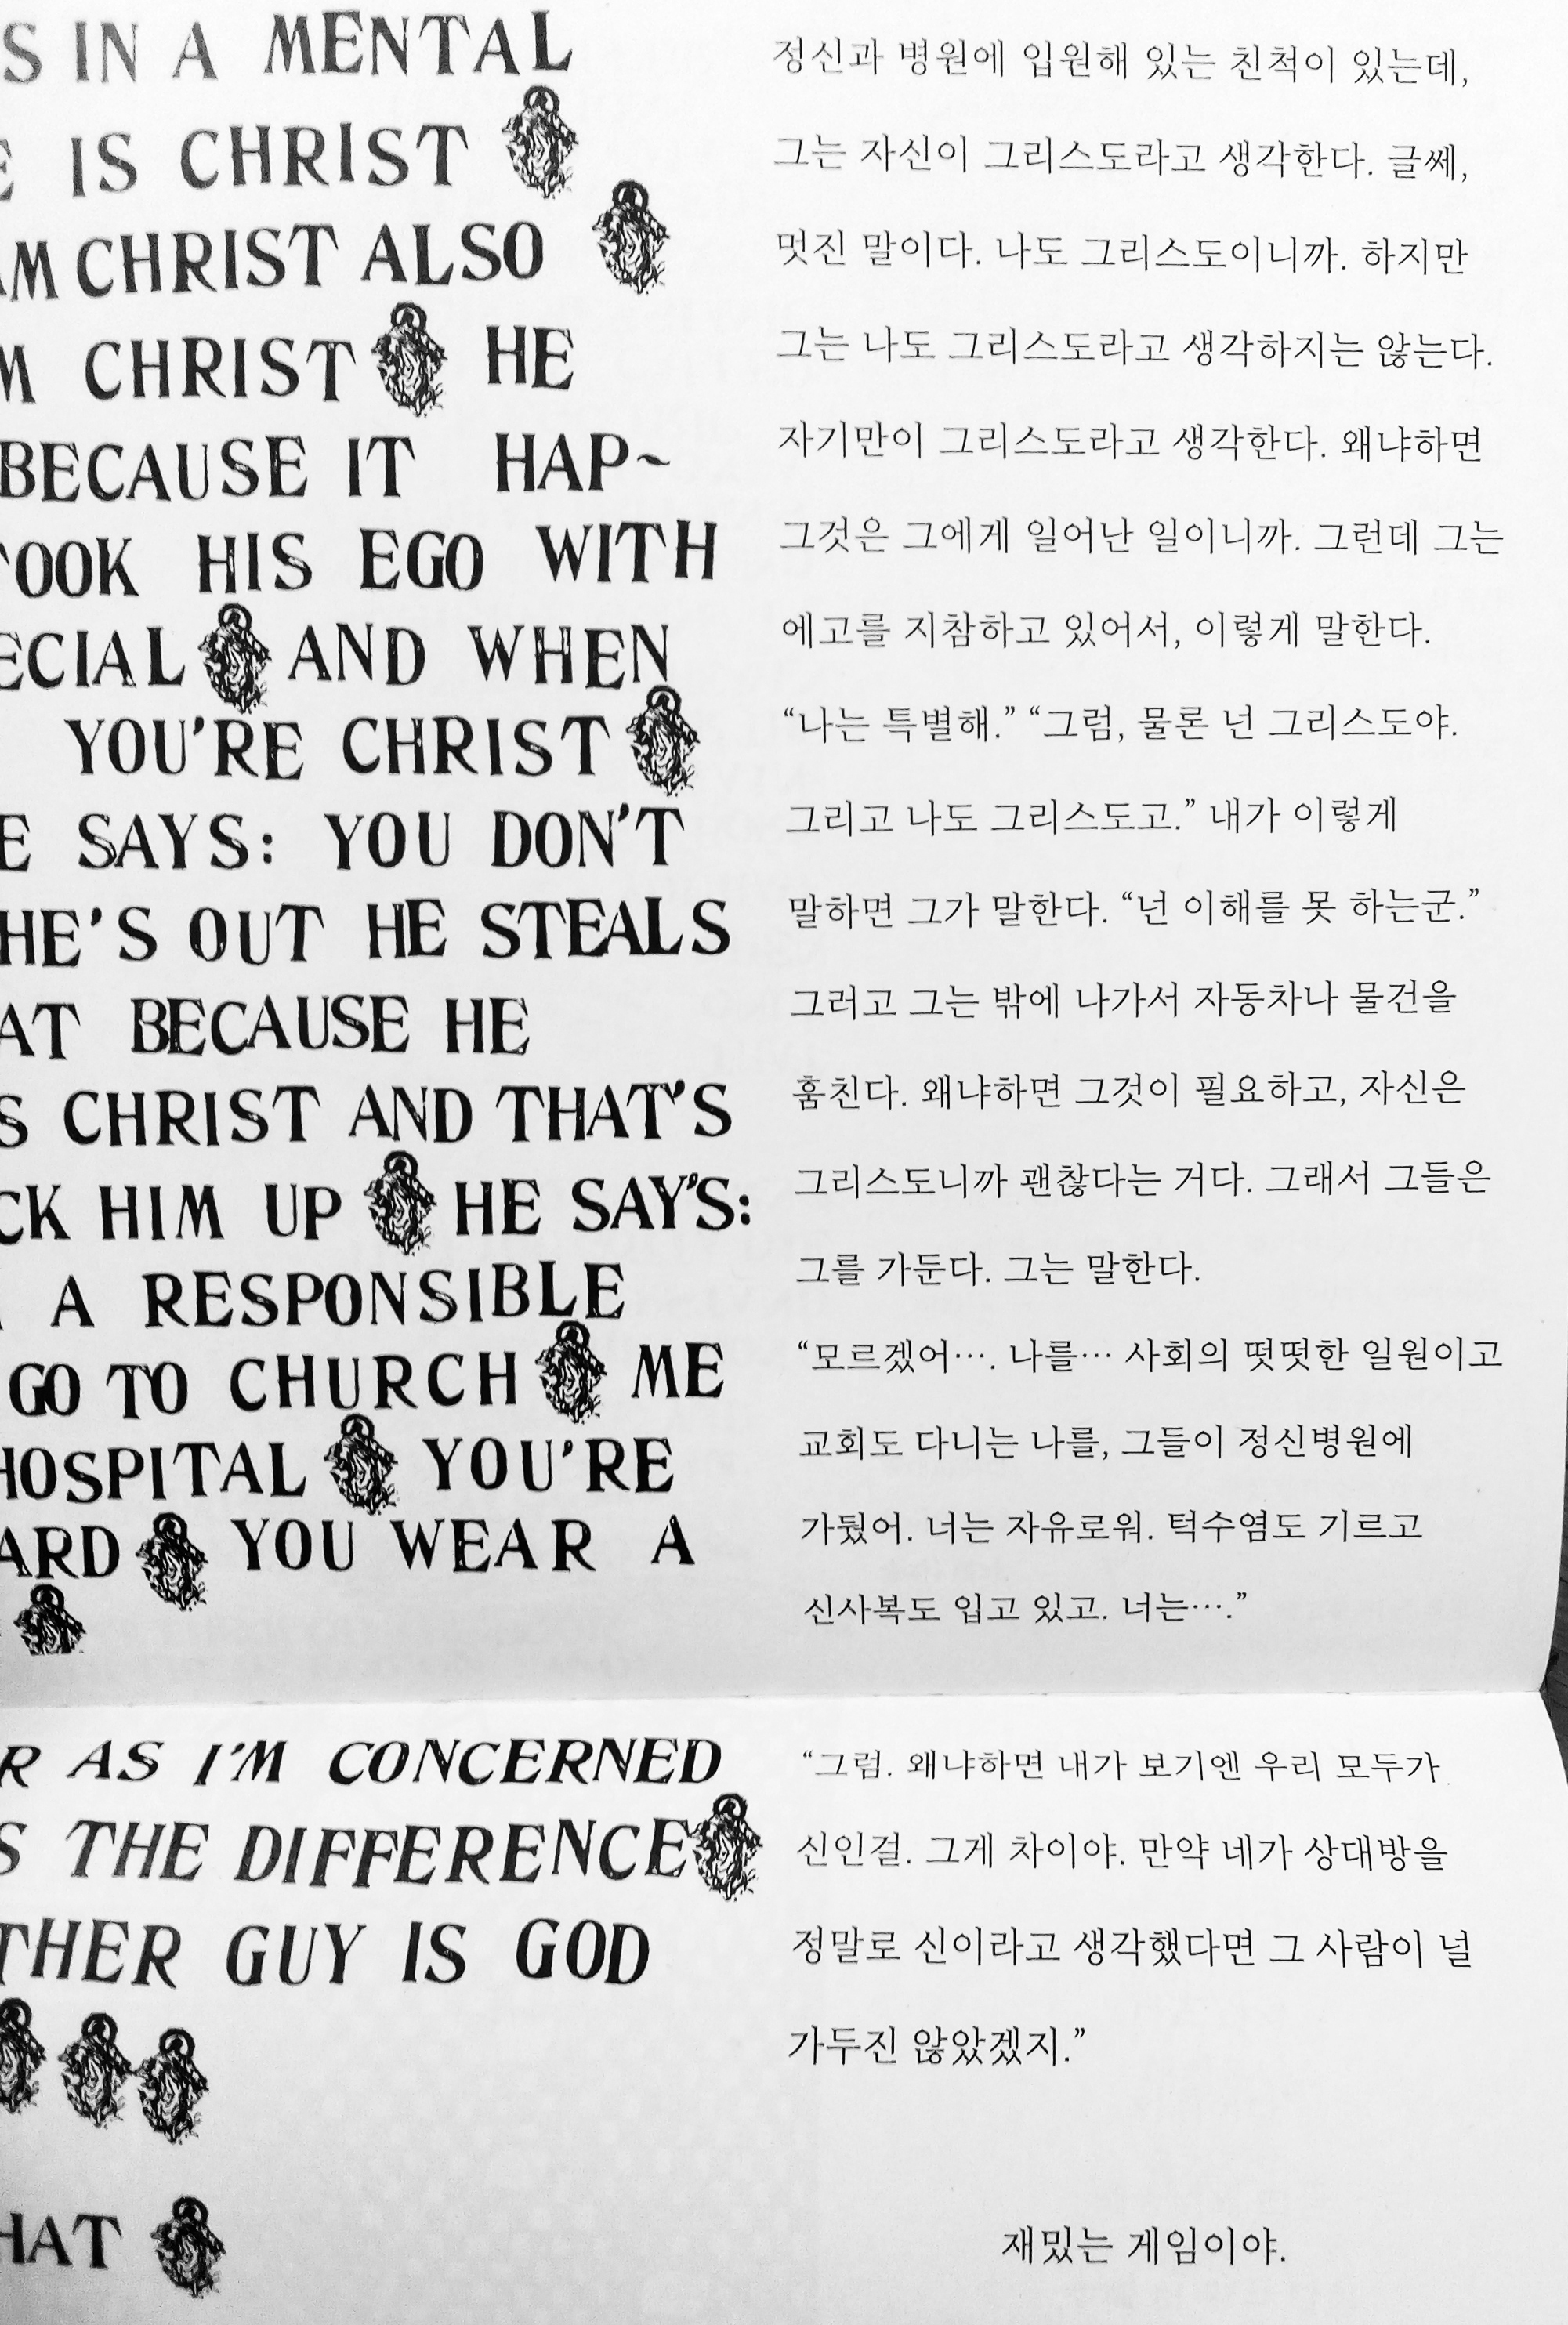 S IN A MENTAL
IS CHRIST
CHRIST ALSO
CHRIST HE
BECAUSE IT HAP~
OOK HIS EGO WITH
ECIAL AND WHEN
YOU'RE CHRIST
E SAYS: YOU DON'T
HE'S OUT HE STEALS
AT BECAUSE HE
S CHRIST AND THAT'S
CK HIM UP HE SAY'S:
A RESPONSIBLE
GO TO CHURCH ME
HOSPITAL YOU'RE
ARD YOU WEAR A
정신과 병원에 입원해 있는 친척이 있는데,
그는 자신이 그리스도라고 생각한다. 글쎄,
멋진 말이다. 나도 그리스도이니까. 하지만
그는 나도 그리스도라고 생각하지는 않는다.
자기만이 그리스도라고 생각한다. 왜냐하면
그것은 그에게 일어난 일이니까. 그런데 그는
에고를 지참하고 있어서, 이렇게 말한다.
“나는 특별해.” “그럼, 물론 넌 그리스도야.
그리고 나도 그리스도고.” 내가 이렇게
말하면 그가 말한다. “넌 이해를 못 하는군.”
그러고 그는 밖에 나가서 자동차나 물건을
훔친다. 왜냐하면 그것이 필요하고, 자신은
그리스도니까 괜찮다는 거다. 그래서 그들은
그를 가둔다. 그는 말한다.
“모르겠어…. 나를… 사회의 떳떳한 일원이고
교회도 다니는 나를, 그들이 정신병원에
가뒀어. 너는 자유로워. 턱수염도 기르고
신사복도 입고 있고. 너는….”
R AS I'M CONCERNED
S THE DIFFERENCE
THER GUY IS GOD
HAT
“그럼. 왜냐하면 내가 보기엔 우리 모두가
신인걸. 그게 차이야. 만약 네가 상대방을
정말로 신이라고 생각했다면 그 사람이 널
가두진 않았겠지.”
재밌는 게임이야.